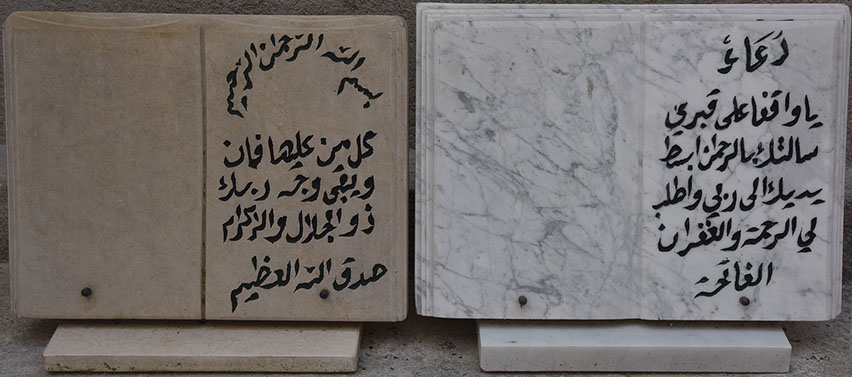 بسم الله الرحمن الرحيم
كل من عليها فان
ويبقى وجه ربك
ذو الجلال والاكرام
صدق الله العظيم
دعاء
يا واقفا على قبري
سالتك بالرحمان ابسط
يديك الى ربي واطلب
لي الرحمة والغفران
الفاتحة